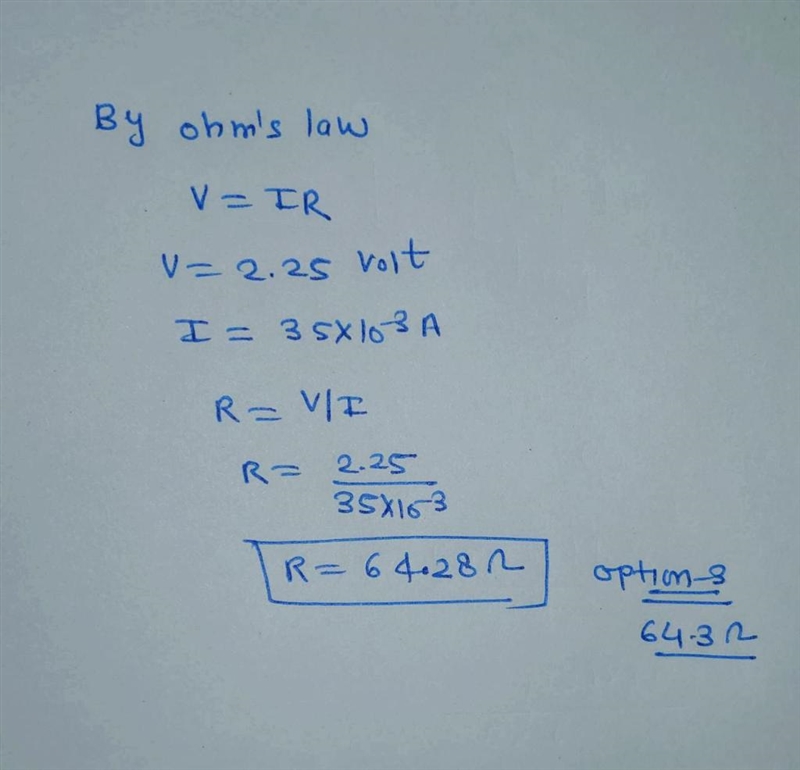 By ohm's law
V = IR
V = 2.25 volt
I = 35X10-3 A
R = V/I
R = 2.25
35X10-3
R = 64.28 Ω
option-3
64.3 Ω